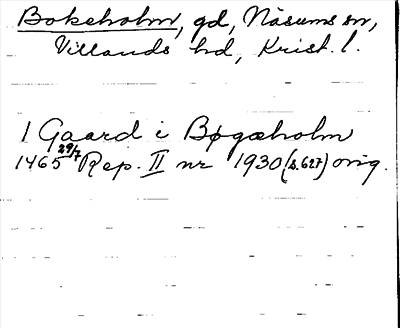 Bokeholm, gd, Näsums sn,
Villands hd, Krist. l.
1 Gaard i Bøgæholm
1465 29/7 Rep. II nr 1930 (s. 627) orig.